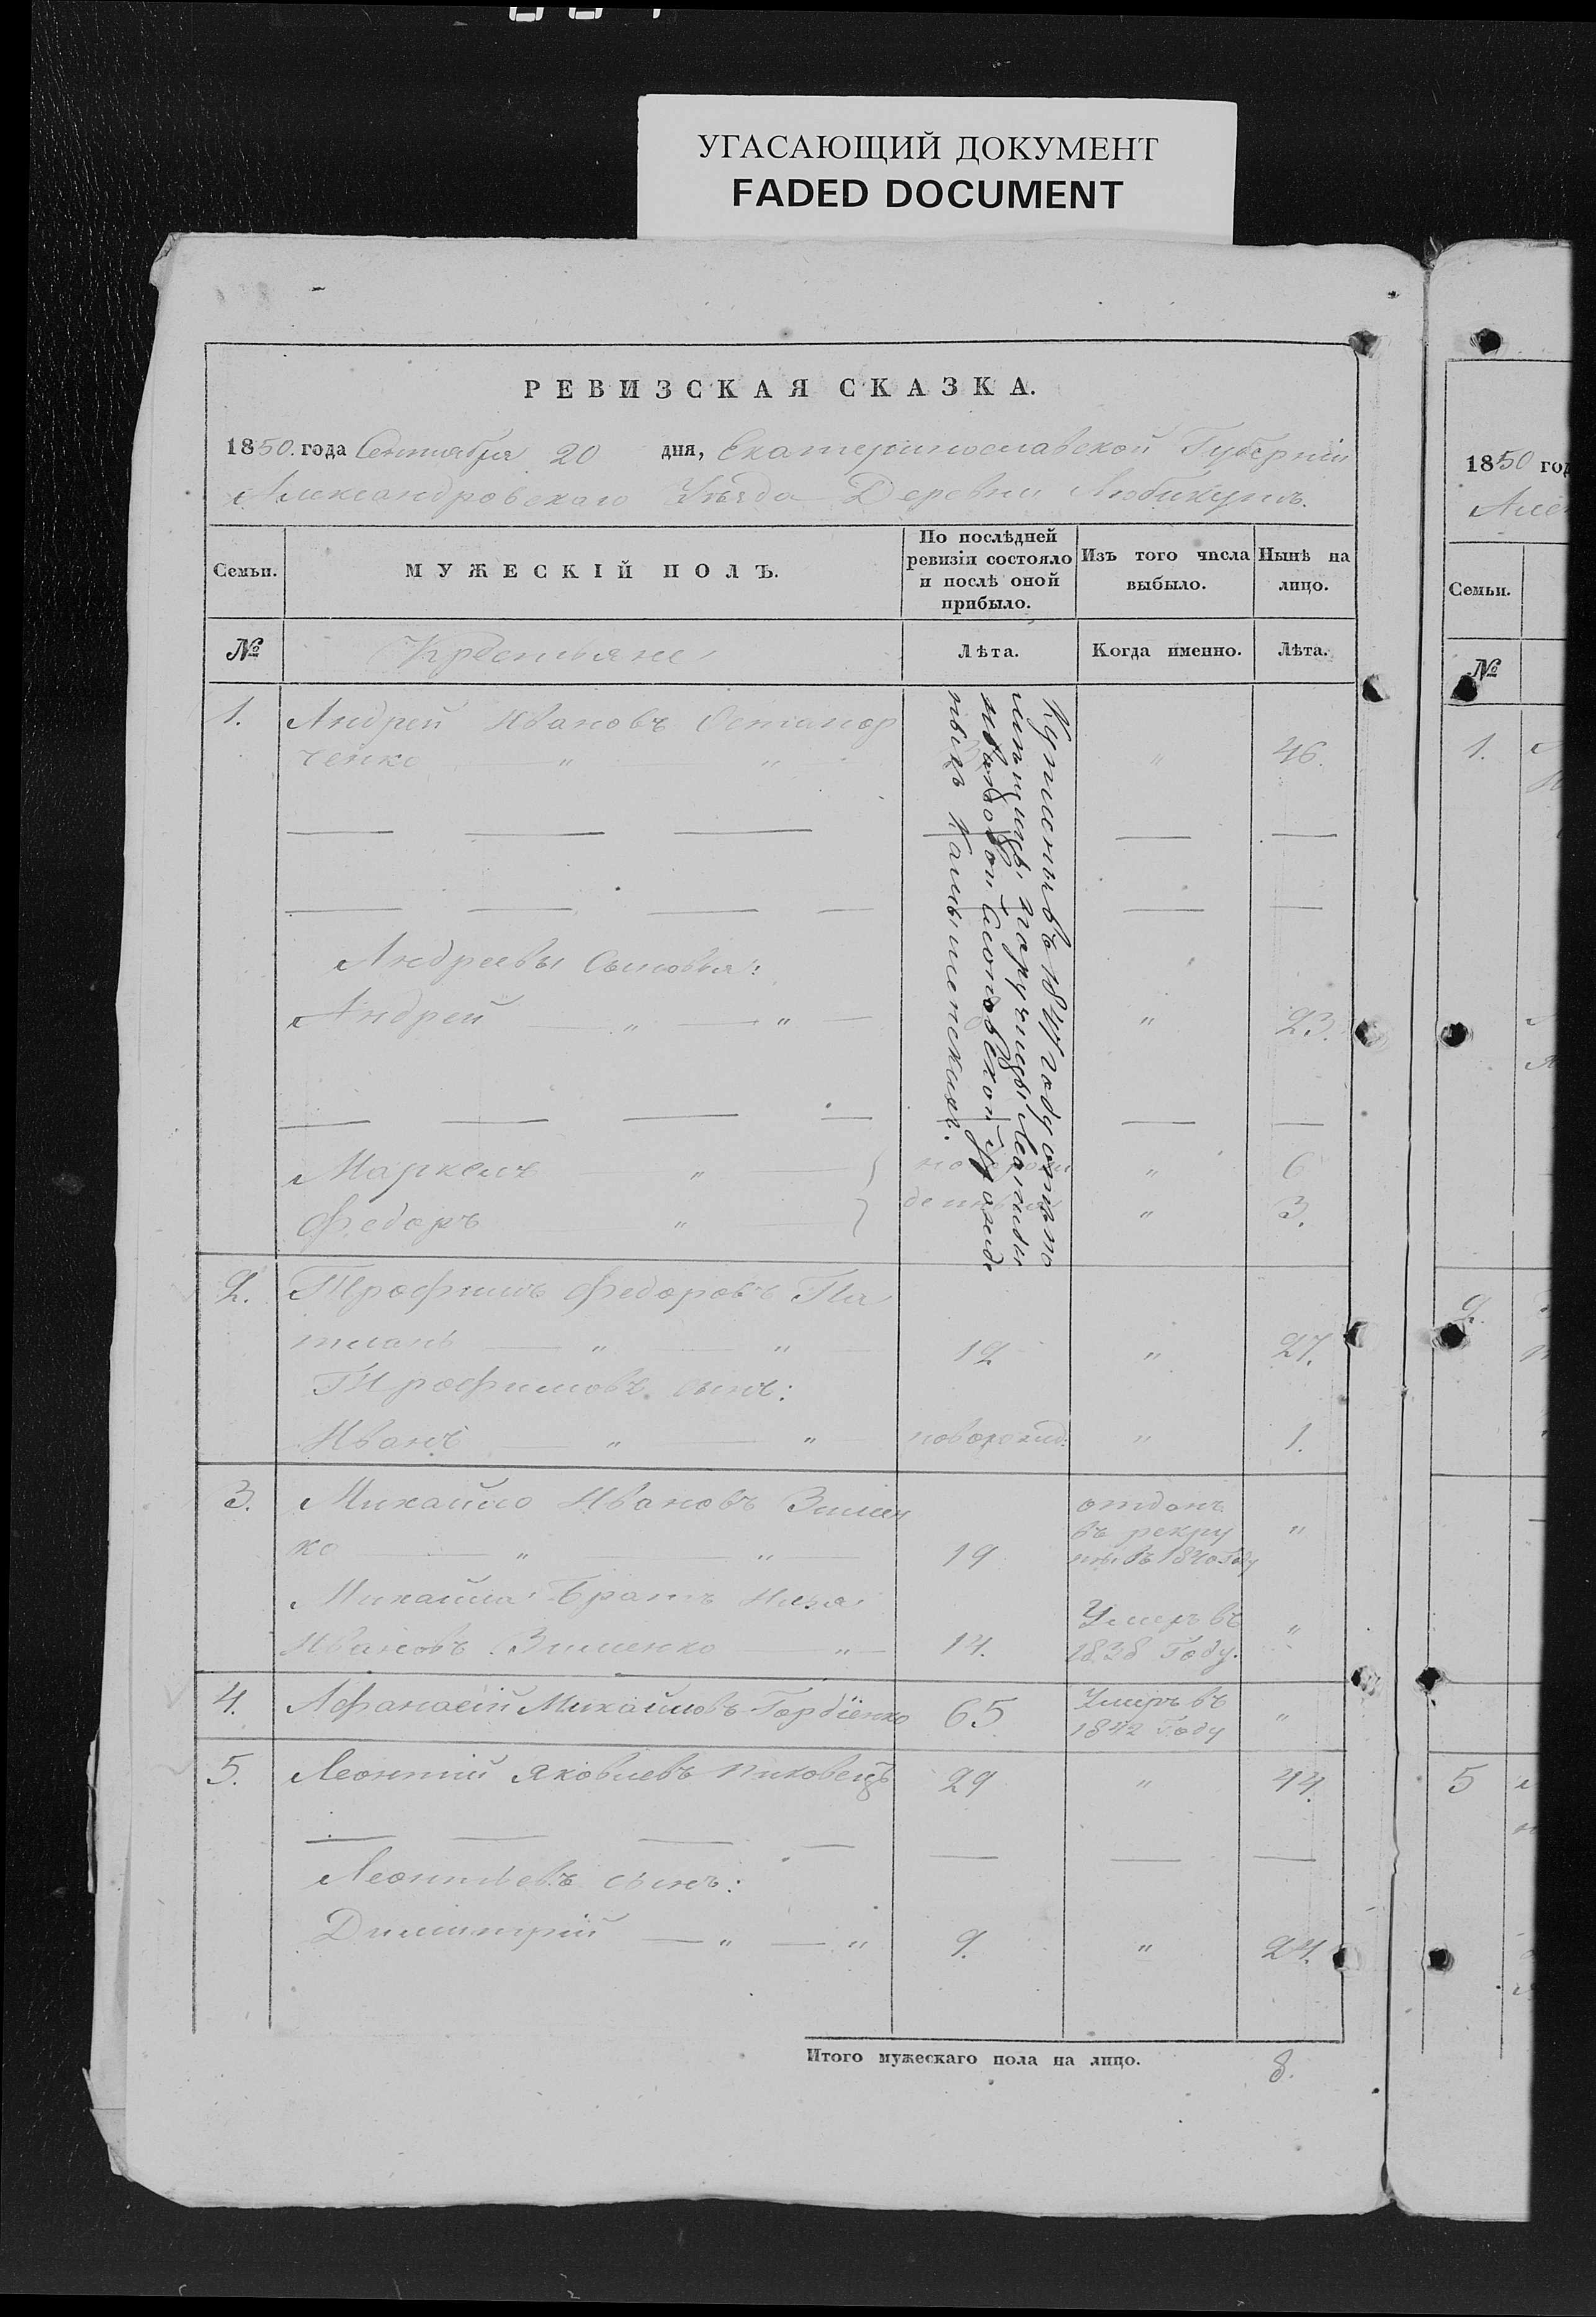 УГАСАЮЩИЙ ДОКУМЕНТ
FADED DOCUMENT
РЕВИЗСКАЯ СКАЗКА.
1850. года Сентября 20 дня, Екатеринославской Губернии
Александровскаго Уѣзда Деревни Любикумъ.
Семьи.
МУЖЕСКІЙ ПОЛЪ.
По послѣдней
ревизіи состояло
и послѣ оной
прибыло.
Изъ того числа
выбыло.
Нынѣ на
лицо.
№
Крестьяне
Лѣта.
Когда именно.
Лѣта.
1. Андрей Ивановъ
ченко " " " 46.
Купленны въ 1841 году отъ по
мѣщицы, поручицы
новыхъ
Андреевы Сыновья:
Андрей " " " 23.
Маркелъ " " 6
Федоръ " " 3.
ново рож
денные
2. Трофимъ Федоровъ Па
" " 12 " 27.
Трофимовъ сынъ:
Иванъ " " новорожд: " 1.
3. Михайло Ивановъ Зимен
ко " " 19 "
отданъ
въ рекру
ты въ 1840 году
Михайла Братъ Илья
Ивановъ Зименко " 14. "
Умеръ въ
1838 Году.
4. Афанасій Михайловъ Гордіенко 65 "
Умеръ въ
1842 Году
5. Леонтій Яковлевъ Пиковецъ 29 " 44.
Леонтьевъ сынъ:
Димитрій " " 9. " 24.
Итого мужескаго пола на лицо. 8.
1850 год
Але
Семьи.
№
1.
2.
5